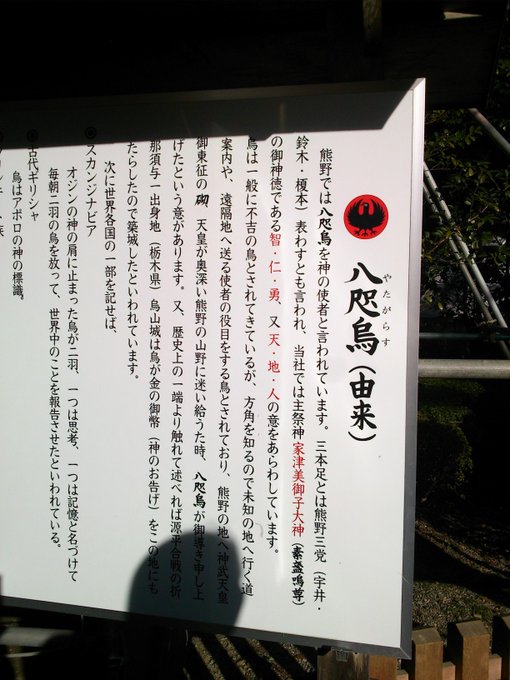 八咫烏（由来）
やたがらす
熊野では八咫烏を神の使者と言われています。三本足とは熊野三党（宇井・
鈴木・榎本）表わすとも言われ、当社では主祭神家津美御子大神（素盞嗚尊）
の御神徳である智・仁・勇、又天・地・人の意をあらわしています。
烏は一般に不吉の鳥とされてきているが、方角を知るので未知の地へ行く道
案内や、遠隔地へ送る使者の役目をする鳥とされており、熊野の地へ神武天皇
御東征の砌 天皇が奥深い熊野の山野に迷い給うた時、八咫烏が御導き申し上
げたという意があります。又、歴史上の一端より触れて述べれば源平合戦の折
那須与一出身地（栃木県）烏山城は烏が金の御幣（神のお告げ）をこの地にも
たらしたので築城したといわれています。
次に世界各国の一部を記せば、
スカンジナビア
オジンの神の肩に止まった烏が二羽、一つは思考、一つは記憶と名づけて
毎朝二羽の烏を放って、世界中のことを報告させたといわれている。
古代ギリシャ
烏はアポロの神の標識。